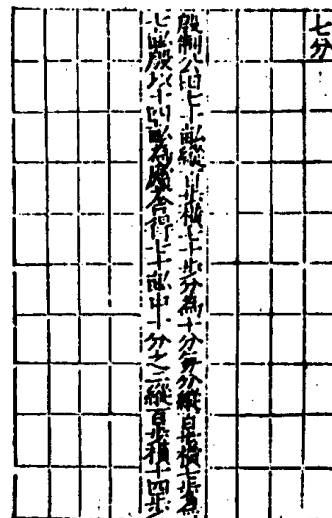 七分
殷制公田七十畝縱百步橫七十步分為十分每分縱百步橫七步為
七畝殷以十四畝為廬舍得七十畝中十分之二縱百步橫十四步